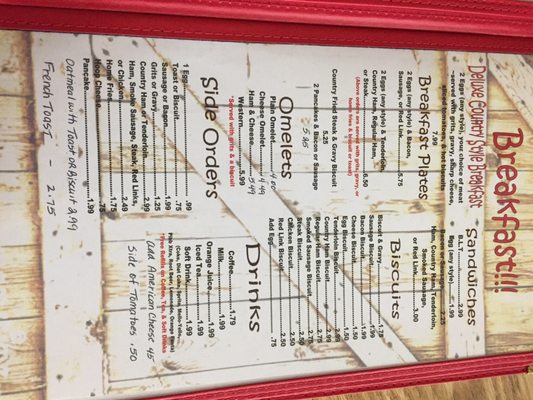 Breakfast!!!
Deluxe Country Style Breakfast
2 Eggs (any style), your choice of meat
served with grits, gravy, sliced cheese,
sliced tomatoes, & hot biscuits
7.99
Breakfast Plates
2 Eggs (any style) & Bacon,
Sausage, or Red Link 5.75
2 Eggs (any style) & Tenderloin,
Country Ham, Regular Ham,
or Steak 6.50
(Above orders are served with grits, gravy, or
home fries & biscuit or toast)
Country Fried Steak & Gravy Biscuit
5.25
2 Pancakes & Bacon or Sausage
5.25
Omelets
Plain Omelet 4.00
Cheese Omelet 4.49
Ham & Cheese 5.49
Western 5.99
*Served with grits & a biscuit
Side Orders
1 Egg .99
Toast or Biscuit .75
Sausage or Bacon 1.99
Grits or Gravy 1.25
Country Ham or Tenderloin 2.99
Ham, Smoke Sausage, Steak, Red Links,
or Chicken 2.49
Home Fries 1.75
Hoop Cheese .75
Pancake 1.99
Oatmeal with Toast or Biscuit 2.99
French Toast - 2.75
Sandwiches
B.L.T. 2.99
Egg (any style) 1.99
Bacon or Sausage 2.25
Ham, Country Ham, Tenderloin,
Smoked Sausage,
or Red Link 3.00
Biscuits
Biscuit & Gravy 1.75
Sausage Biscuit 1.99
Bacon Biscuit 1.99
Cheese Biscuit 1.50
Egg Biscuit 1.50
Tenderloin Biscuit 2.99
Country Ham Biscuit 2.99
Regular Ham Biscuit 2.75
Smoked Sausage Biscuit 2.75
Steak Biscuit 2.50
Chicken Biscuit 2.50
Red Link Biscuit 2.50
Add Egg .75
Drinks
Coffee 1.79
Milk 1.99
Orange Juice 1.99
Iced Tea 1.99
Soft Drink 1.99
(Coke, Diet Coke, Sprite, Mello-Yello,
Root Beer, Lemonade, Orange Fanta)
*Free Refills on Coffee, Tea, & Soft Drinks
Add American Cheese 45
Side of Tomatoes .50